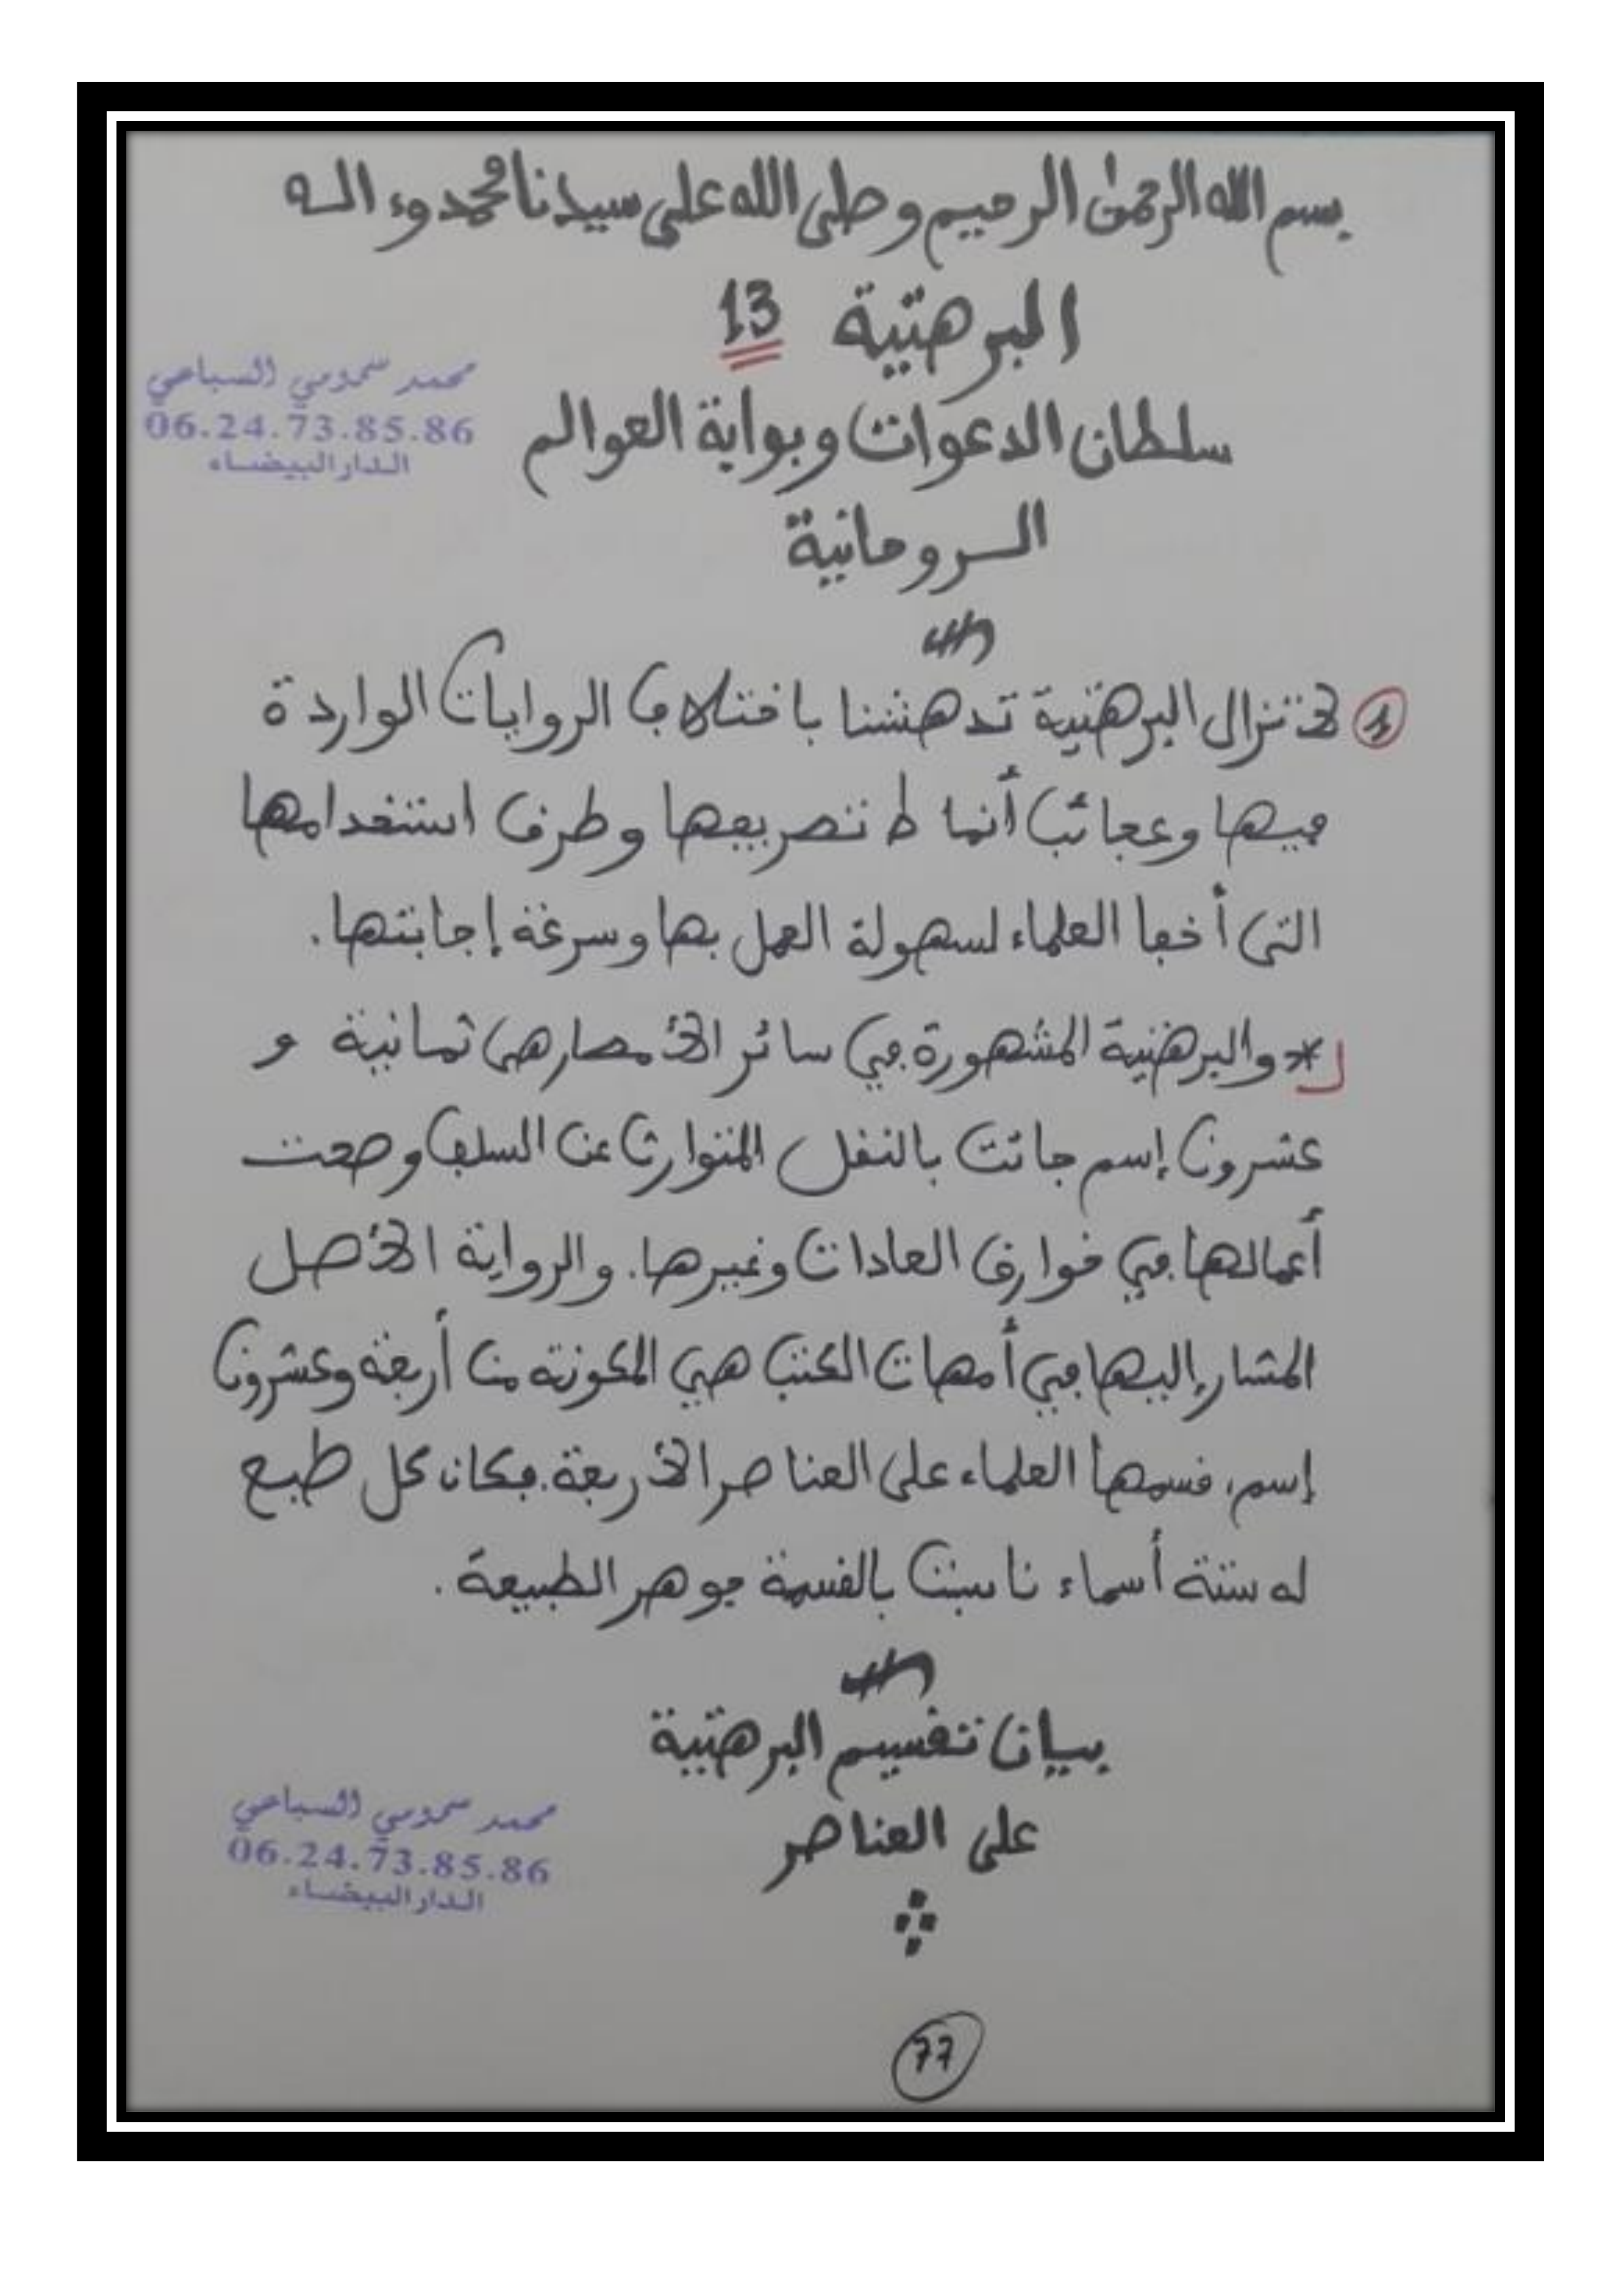 بسم الله الرحمٰن الرحيم وصلى الله على سيدنا محمد وءاله
البرهتية 13
محمد سمومي السباعي
06.24.73.85.86
الدار البيضاء
سلطان الدعوات وبوابة العوالم
الروحانية
① لا تزال البرهتية تدهشنا باختلاف الروايات الواردة
فيها وعجائب أنماط تصريفها وطرق استخدامها
التي أخفا العلماء لسهولة العمل بها وسرعة إجابتها.
* والبرهتية المشهورة في سائر الأمصار هي ثمانية و
عشرون إسم جائت بالنقل المتوارث عن السلف وصحت
أعمالها في خوارق العادات وغيرها. والرواية الأصل
المشار إليها في أمهات الكتب هي المكونة من أربعة وعشرون
إسم، قسمها العلماء على العناصر الأربعة. فكان كل طبع
له ستة أسماء ناسبت بالقسمة جوهر الطبيعة.
بيان تقسيم البرهتية
على العناصر
محمد سمومي السباعي
06.24.73.85.86
الدار البيضاء
77